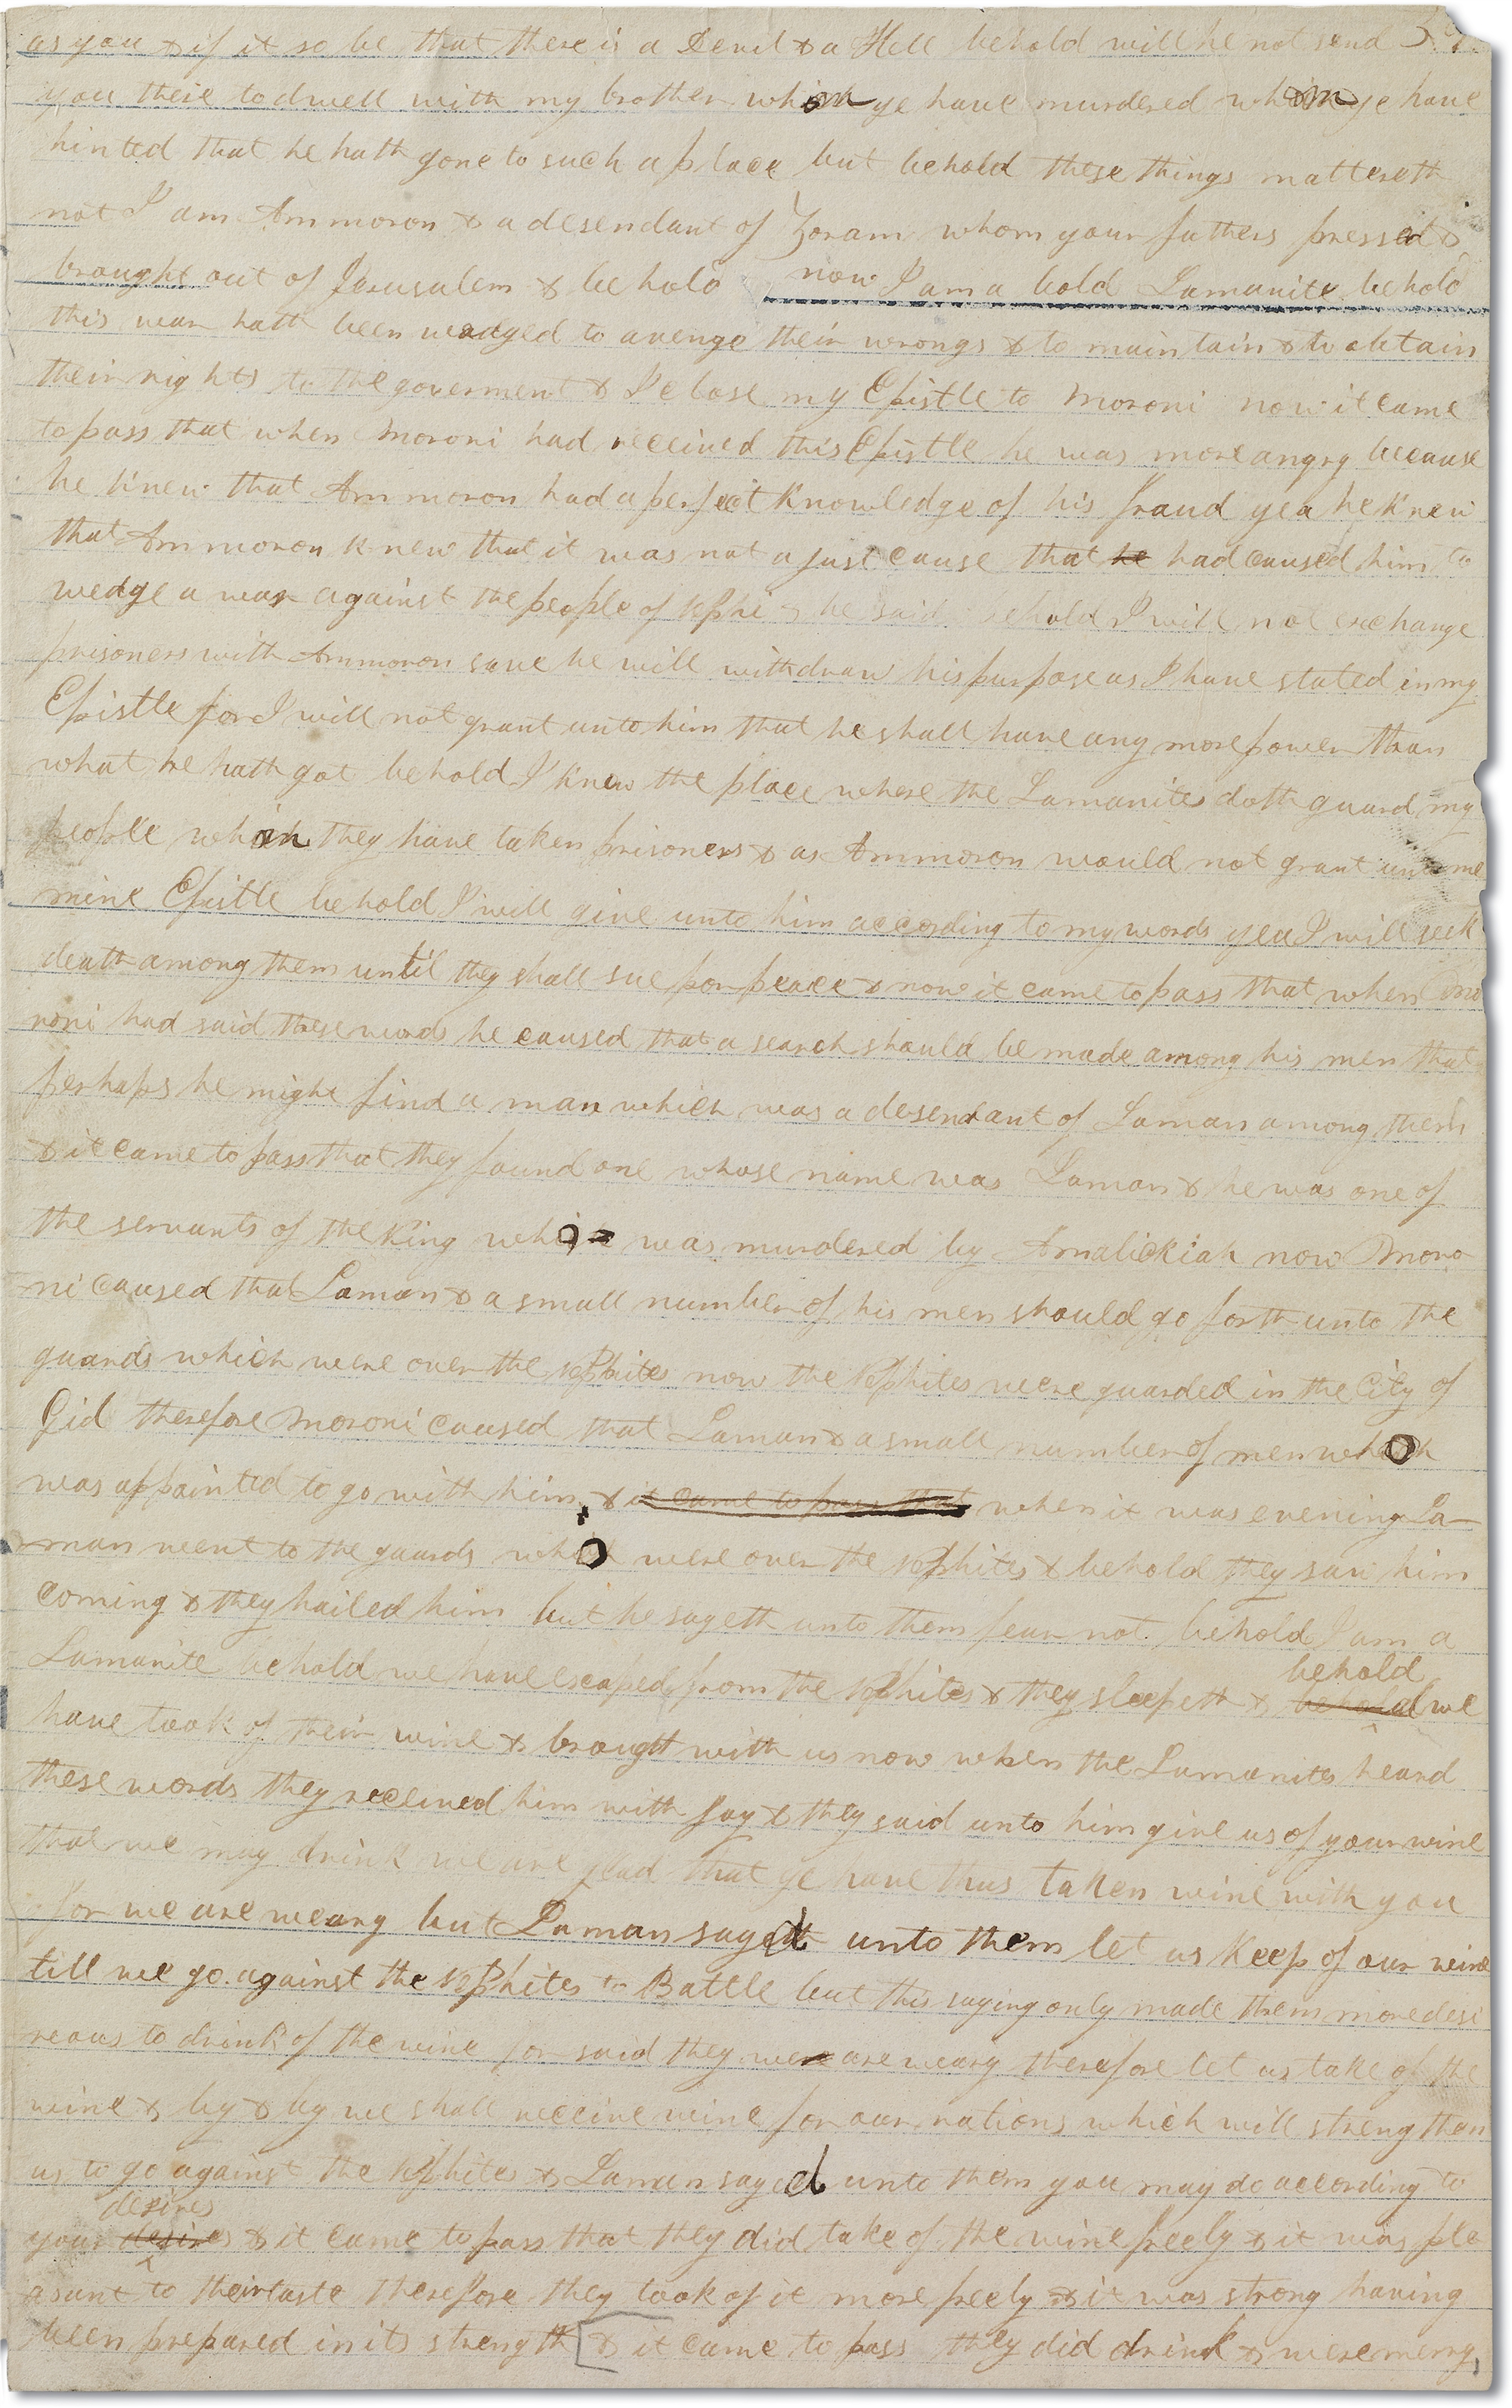 as you & if it so be that there is a Devil & a Hell behold will he not send
you there to dwell with my brother whom ye have murdered whom ye have
hinted that he hath gone to such a place but behold these things mattereth
not I am Ammoron & a desendant of Zoram whom your fathers pressed &
brought out of Jerusalem & behold now I am a bold Lamanite behold
this war hath been waged to avenge their wrongs & to maintain & to obtain
their rights to the goverment & I close my Epistle to Moroni now it came
to pass that when Moroni had received this Epistle he was more angry because
he knew that Ammoron had a perfect knowledge of his fraud yea he knew
that Ammoron knew that it was not a just cause that he had caused him to
wedge a war against the people of Nephi & he said behold I will not exchange
prisoners with Ammoron save he will withdraw his purpose as I have stated in my
Epistle for I will not grant unto him that he shall have any more power than
what he hath got behold I know the place where the Lamanites doth guard my
people whom they have taken prisoners & as Ammoron would not grant unto me
mine Epistle behold I will give unto him according to my words yea I will seek
death among them until they shall sue for peace & now it came to pass that when Mo
roni had said these words he caused that a search should be made among his men that
perhaps he might find a man which was a desendant of Laman among them
& it came to pass that they found one whose name was Laman & he was one of
the servants of the King who was murdered by Amalickiah now Moro
ni caused that Laman & a small number of his men should go forth unto the
guards which were over the Nephites now the Nephites were guarded in the City of
Gid therefore Moroni caused that Laman & a small number of men who
was appainted to go with him & it came to pass that when it was evening La-
man went to the guards who were over the Nephites & behold they saw him
coming & they hailed him but he sayeth unto them fear not behold I am a
behold
Lamanite behold we have escaped from the Nephites & they sleepeth & behold we
have took of their wine & brought with us now when the Lamanites heard
these words they received him with joy & they said unto him give us of your wine
that we may drink we are glad that ye have thus taken wine with you
for we are weary but Laman sayed unto them let us keep of our wine
till we go against the Nephites to Battle but this saying only made them more desi
reous to drink of the wine for said they were are weary therefore let us take of the
wine & by & by we shall receive wine for our rations which will strengthen
us to go against the Nephites & Laman sayed unto them you may do according to
desires
your desires & it came to pass that they did take of the wine freely & it was ple
asant to their taste therefore they took of it more freely & it was strong having
been prepared in its strength & it came to pass they did drink & were merry